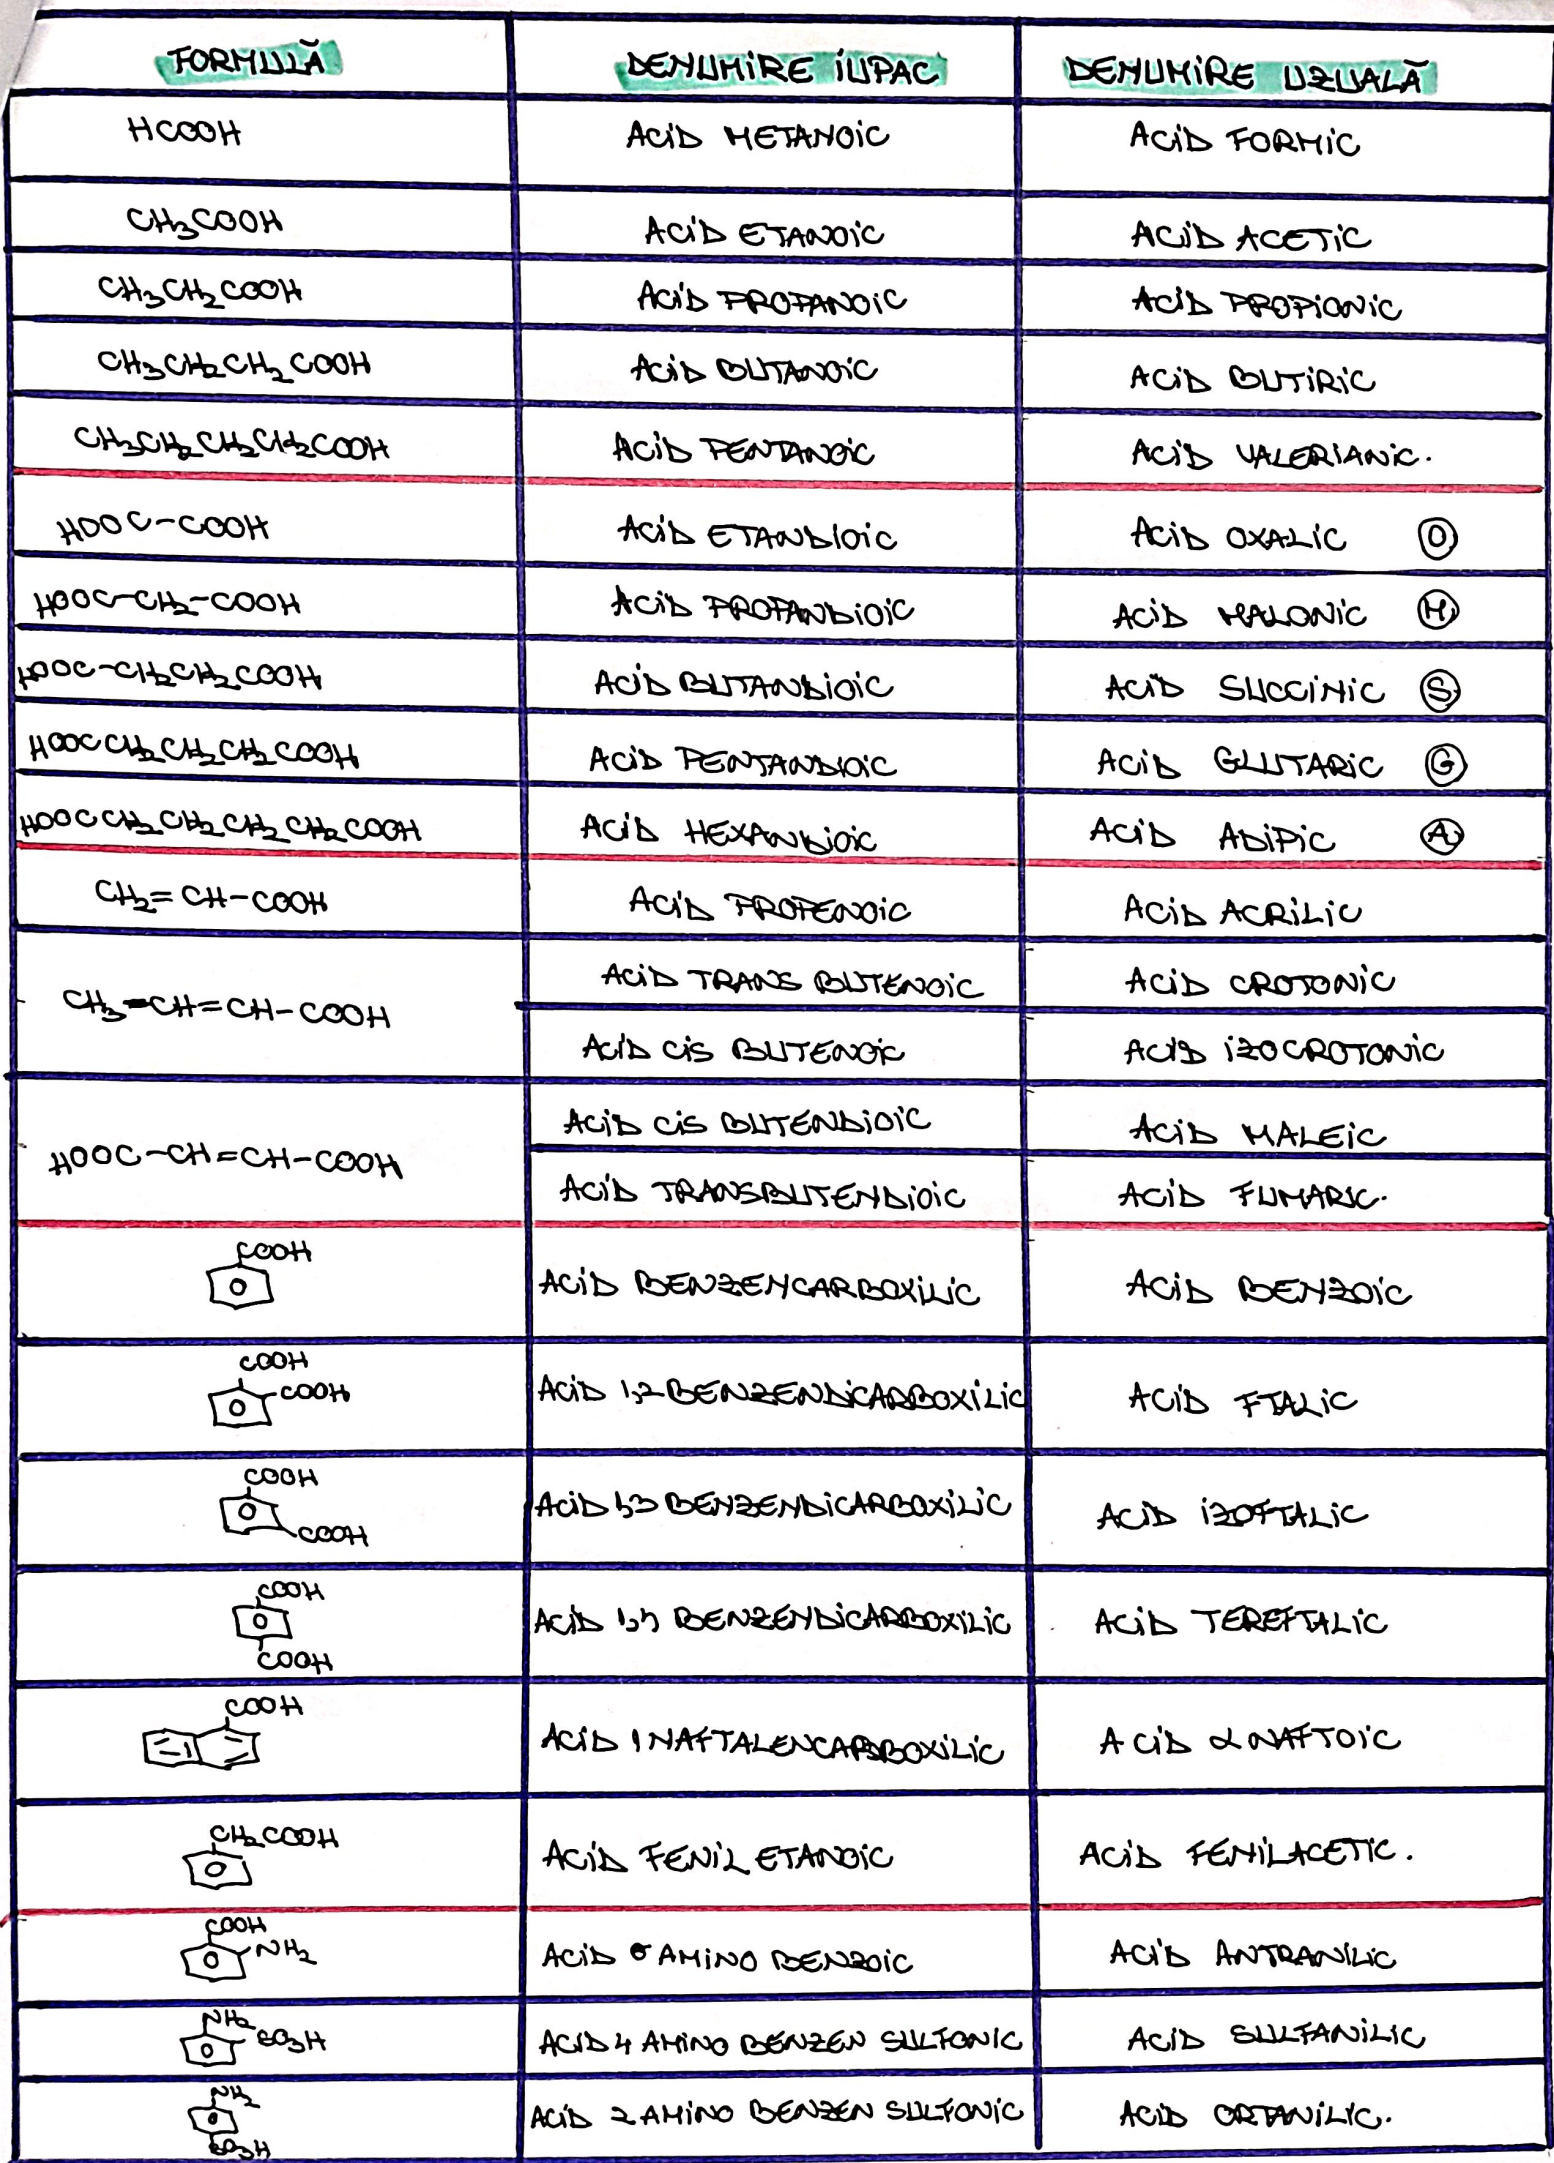 FORMULĂ DENUMIRE IUPAC DENUMIRE UZUALĂ
HCOOH ACID METANOIC ACID FORMIC
CH₃COOH ACID ETANOIC ACID ACETIC
CH₃CH₂COOH ACID PROPANOIC ACID PROPIONIC
CH₃CH₂CH₂COOH ACID BUTANOIC ACID BUTIRIC
CH₃CH₂CH₂CH₂COOH ACID PENTANOIC ACID VALERIANIC.
HOOC-COOH ACID ETANDIOIC ACID OXALIC O
HOOC-CH₂-COOH ACID PROPANDIOIC ACID MALONIC M
HOOC-CH₂CH₂COOH ACID BUTANDIOIC ACID SUCCINIC S
HOOCCH₂CH₂CH₂COOH ACID PENTANDIOIC ACID GLUTARIC G
HOOCCH₂CH₂CH₂CH₂COOH ACID HEXANDIOIC ACID ADIPIC A
CH₂=CH-COOH ACID PROPENOIC ACID ACRILIC
CH₃-CH=CH-COOH ACID TRANS BUTENOIC ACID CROTONIC
ACID CIS BUTENOIC ACID IZOCROTONIC
HOOC-CH=CH-COOH ACID CIS BUTENDIOIC ACID MALEIC
ACID TRANSBUTENDIOIC ACID FUMARIC.
COOH
ACID BENZENCARBOXILIC ACID BENZOIC
COOH
COOH ACID 1,2 BENZENDICARBOXILIC ACID FTALIC
COOH
ACID 1,3 BENZENDICARBOXILIC ACID IZOFTALIC
COOH
COOH
ACID 1,4 BENZENDICARBOXILIC ACID TEREFTALIC
COOH
COOH
ACID 1 NAFTALENCARBOXILIC ACID α NAFTOIC
CH₂COOH
ACID FENIL ETANOIC ACID FENILACETIC.
COOH
NH₂ ACID o AMINO BENZOIC ACID ANTRANILIC
NH₂
SO₃H ACID 4 AMINO BENZEN SULFONIC ACID SULFANILIC
NH₂
ACID 2 AMINO BENZEN SULFONIC ACID ORTANILIC.
SO₃H